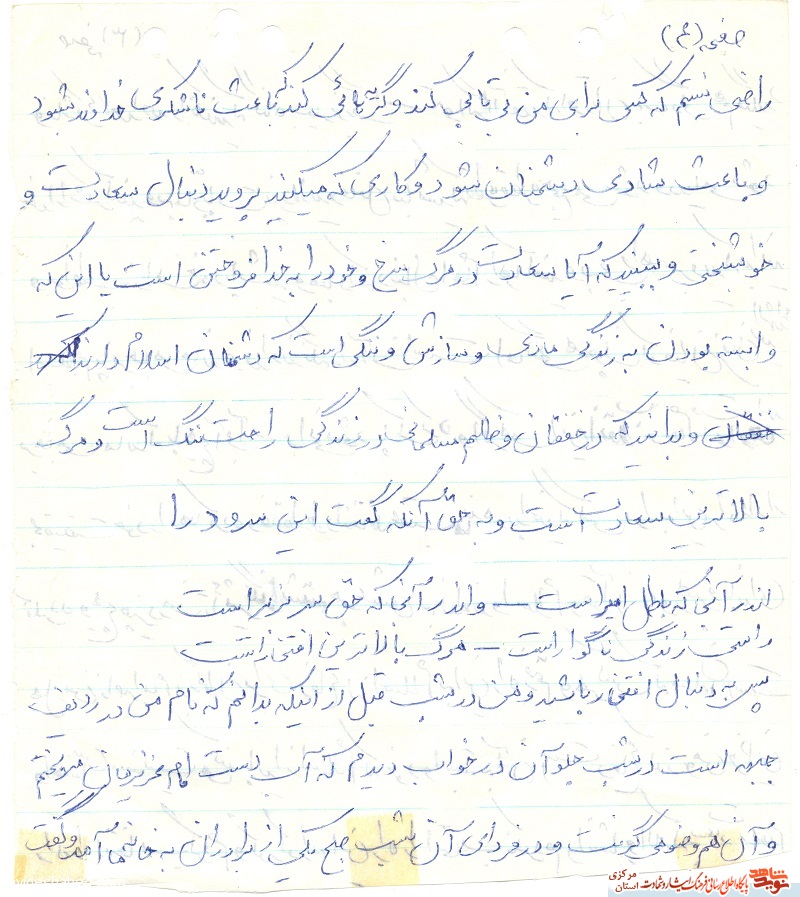 صفحه (۴)
راضی نیستم که کسی برای من بی تابی کند و گریه زائی کند که باعث ناشکری خداوند بشود
و باعث شادی دشمنان شود و کاری که میکنید بروید دنبال سعادت و
خوشبختی و ببینید که آیا سعادت در مرگ سرخ و خود را به خدا فروختن است یا این که
وابسته بودن به زندگی مادی و سازش و ننگی است که دشمنان اسلام دارند
و بدانید که در خفقان و ظلم مسلمانی در زندگی راحت ننگ است و مرگ
بالاترین سعادت است و به حق آنکه گفت این سرود را
اندر آنجا که باطل امیر است — و اندر آنجا که حق سر بزیر است
راستی زندگی ناگوار است — مرگ بالاترین افتخار است
پس به دنبال افتخار باشید و من در شب قبل از اینکه بدانم که نام من در ردیف
جبهه است در شب جلو آن در خواب دیدم که آب دست امام عزیزمان میریختم
و آن هم وضو می گرفت و در فردای آن شب صبح یکی از برادران به خانه ما آمد و گفت
نوید شاهد
پایگاه اطلاع رسانی فرهنگ ایثار و شهادت
استان مرکزی